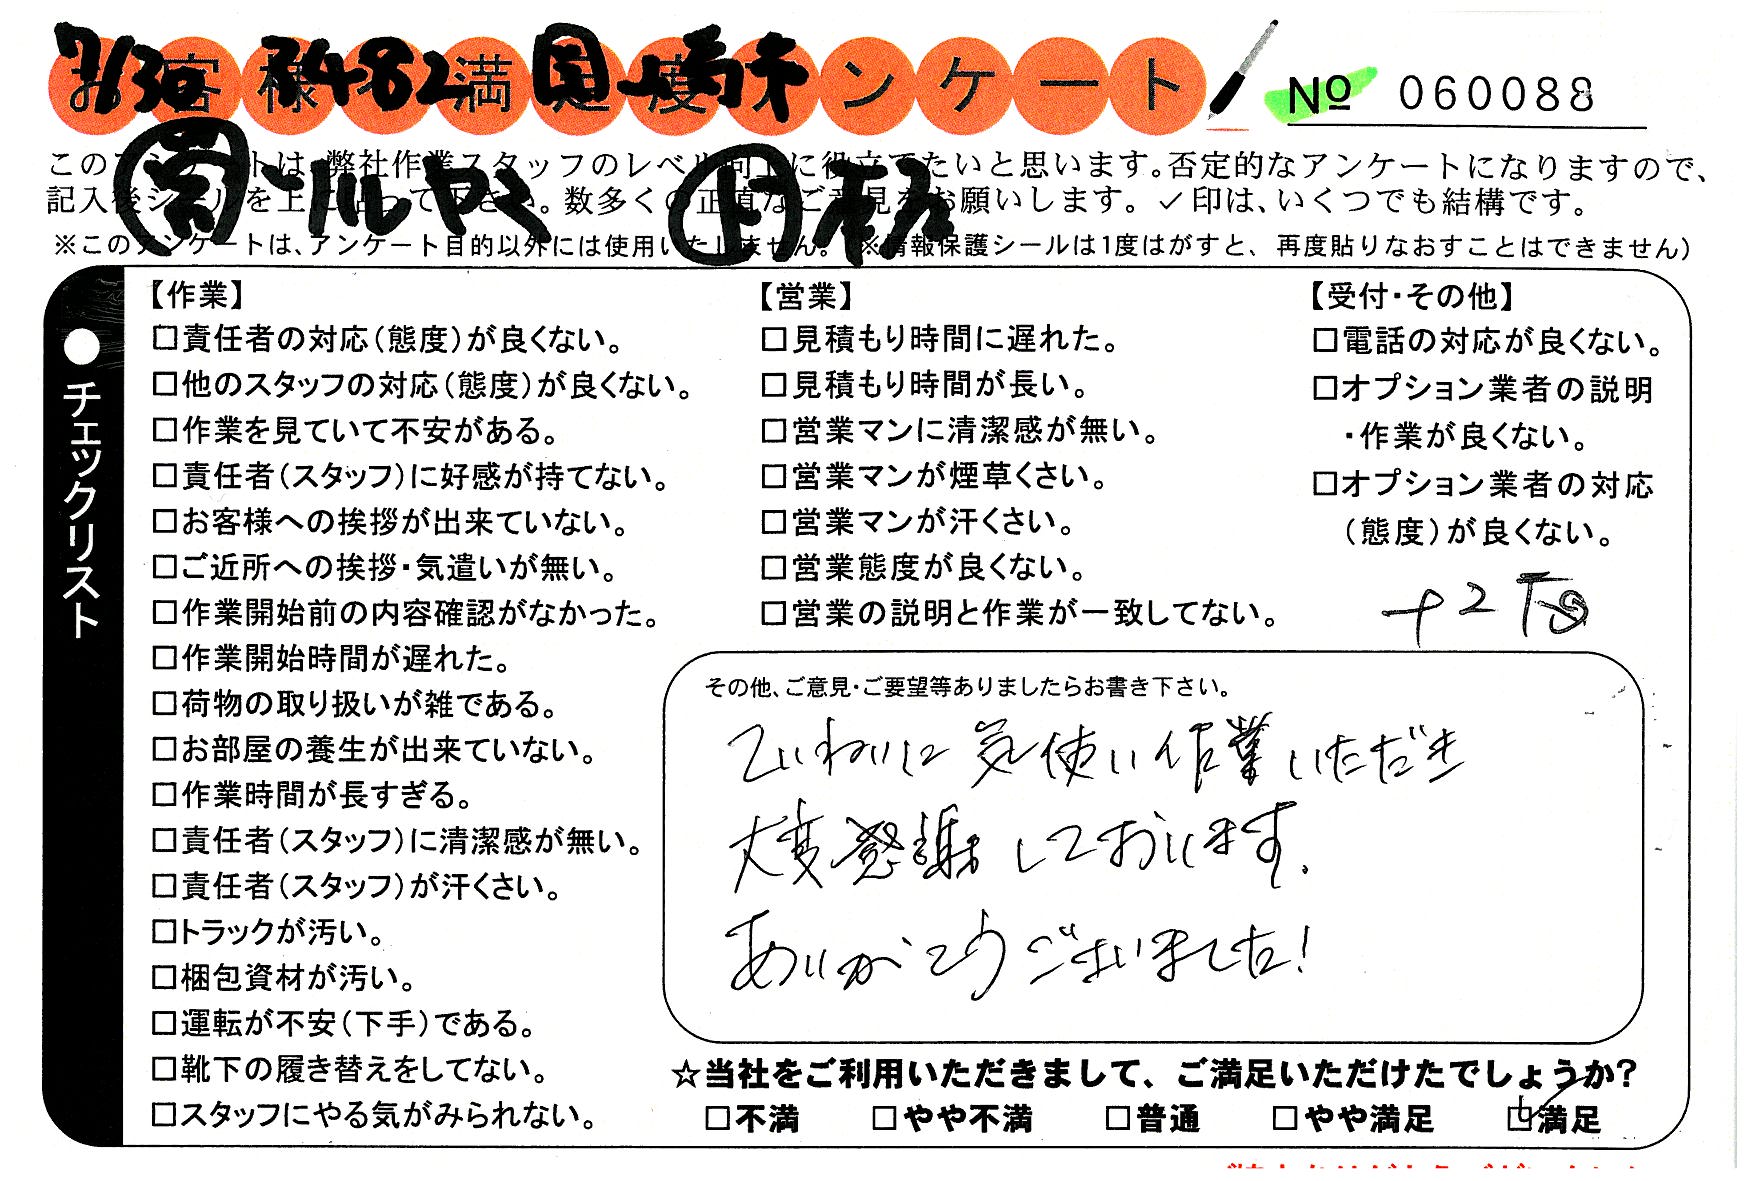 お客様満足度アンケート
7/30 7482
No 060088
このアンケートは、弊社作業スタッフのレベル向上に役立てたいと思います。否定的なアンケートになりますので、
記入後シールを上に貼って下さい。数多くの正直なご意見をお願いします。✓印は、いくつでも結構です。
※このアンケートは、アンケート目的以外には使用いたしません。(※情報保護シールは1度はがすと、再度貼りなおすことはできません)
●チェックリスト
【作業】
□責任者の対応(態度)が良くない。
□他のスタッフの対応(態度)が良くない。
□作業を見ていて不安がある。
□責任者(スタッフ)に好感が持てない。
□お客様への挨拶が出来ていない。
□ご近所への挨拶・気遣いが無い。
□作業開始前の内容確認がなかった。
□作業開始時間が遅れた。
□荷物の取り扱いが雑である。
□お部屋の養生が出来ていない。
□作業時間が長すぎる。
□責任者(スタッフ)に清潔感が無い。
□責任者(スタッフ)が汗くさい。
□トラックが汚い。
□梱包資材が汚い。
□運転が不安(下手)である。
□靴下の履き替えをしてない。
□スタッフにやる気がみられない。
【営業】
□見積もり時間に遅れた。
□見積もり時間が長い。
□営業マンに清潔感が無い。
□営業マンが煙草くさい。
□営業マンが汗くさい。
□営業態度が良くない。
□営業の説明と作業が一致してない。
【受付・その他】
□電話の対応が良くない。
□オプション業者の説明
・作業が良くない。
□オプション業者の対応
(態度)が良くない。
+2
その他、ご意見・ご要望等ありましたらお書き下さい。
ていねいに気使い作業いただき
大変感謝しております.
ありがとうございました!
☆当社をご利用いただきまして、ご満足いただけたでしょうか?
□不満 □やや不満 □普通 □やや満足 ☑満足